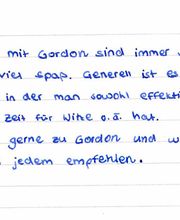 mit Gordon sind immer
viel spaß. Generell ist es
in der man sowohl effekti
zeit für Witze o.ä. hat.
gerne zu Gordon und w
jedem empfehlen.